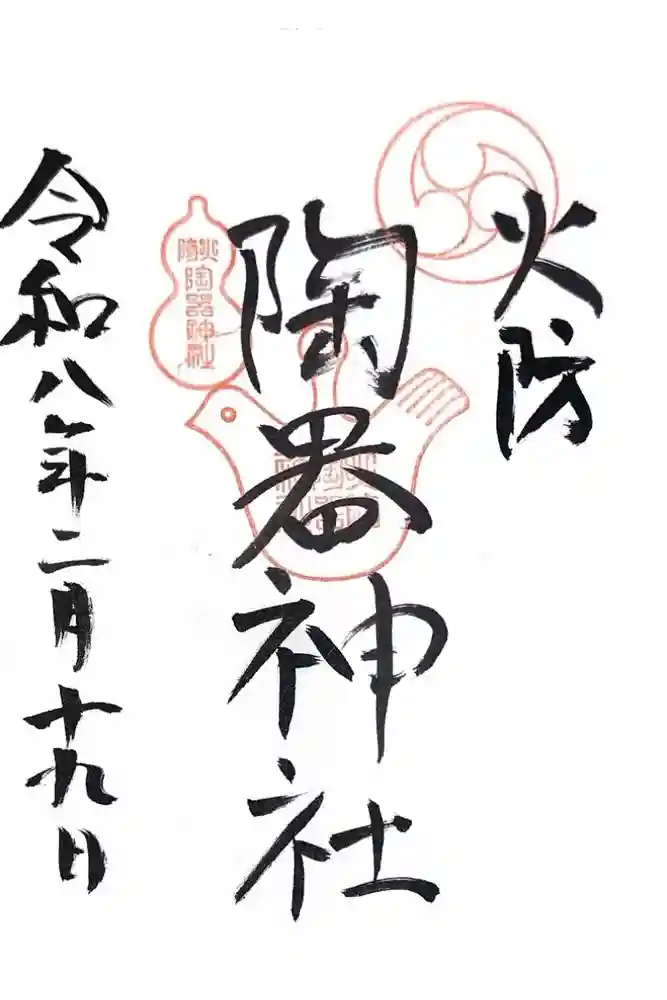 火防
陶器神社
令和八年二月十九日
火防
陶器神社
火防
陶器
神社